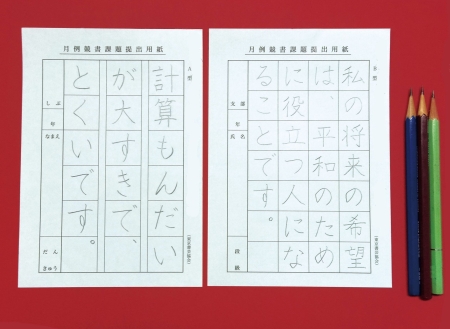 月例競書課題提出用紙
A型
計算もんだい
が大すきで、
とくいです。
しぶ
年
なまえ
だん
きゅう
月例競書課題提出用紙
B型
私の将来の希望
は、平和のため
に役立つ人にな
ることです。
支部
年
氏名
段
級